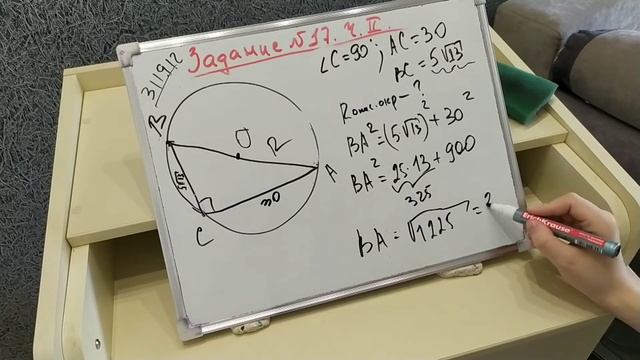 Задание №17. Ч. II.
311912
∠C=90°; AC=30
BC=5√13
Rопис.окр - ?
BA²=(5√13)²+30²
BA²=25·13+900
325
BA=√1225=3
B
O
R
A
5√13
30
C
ErichKrause